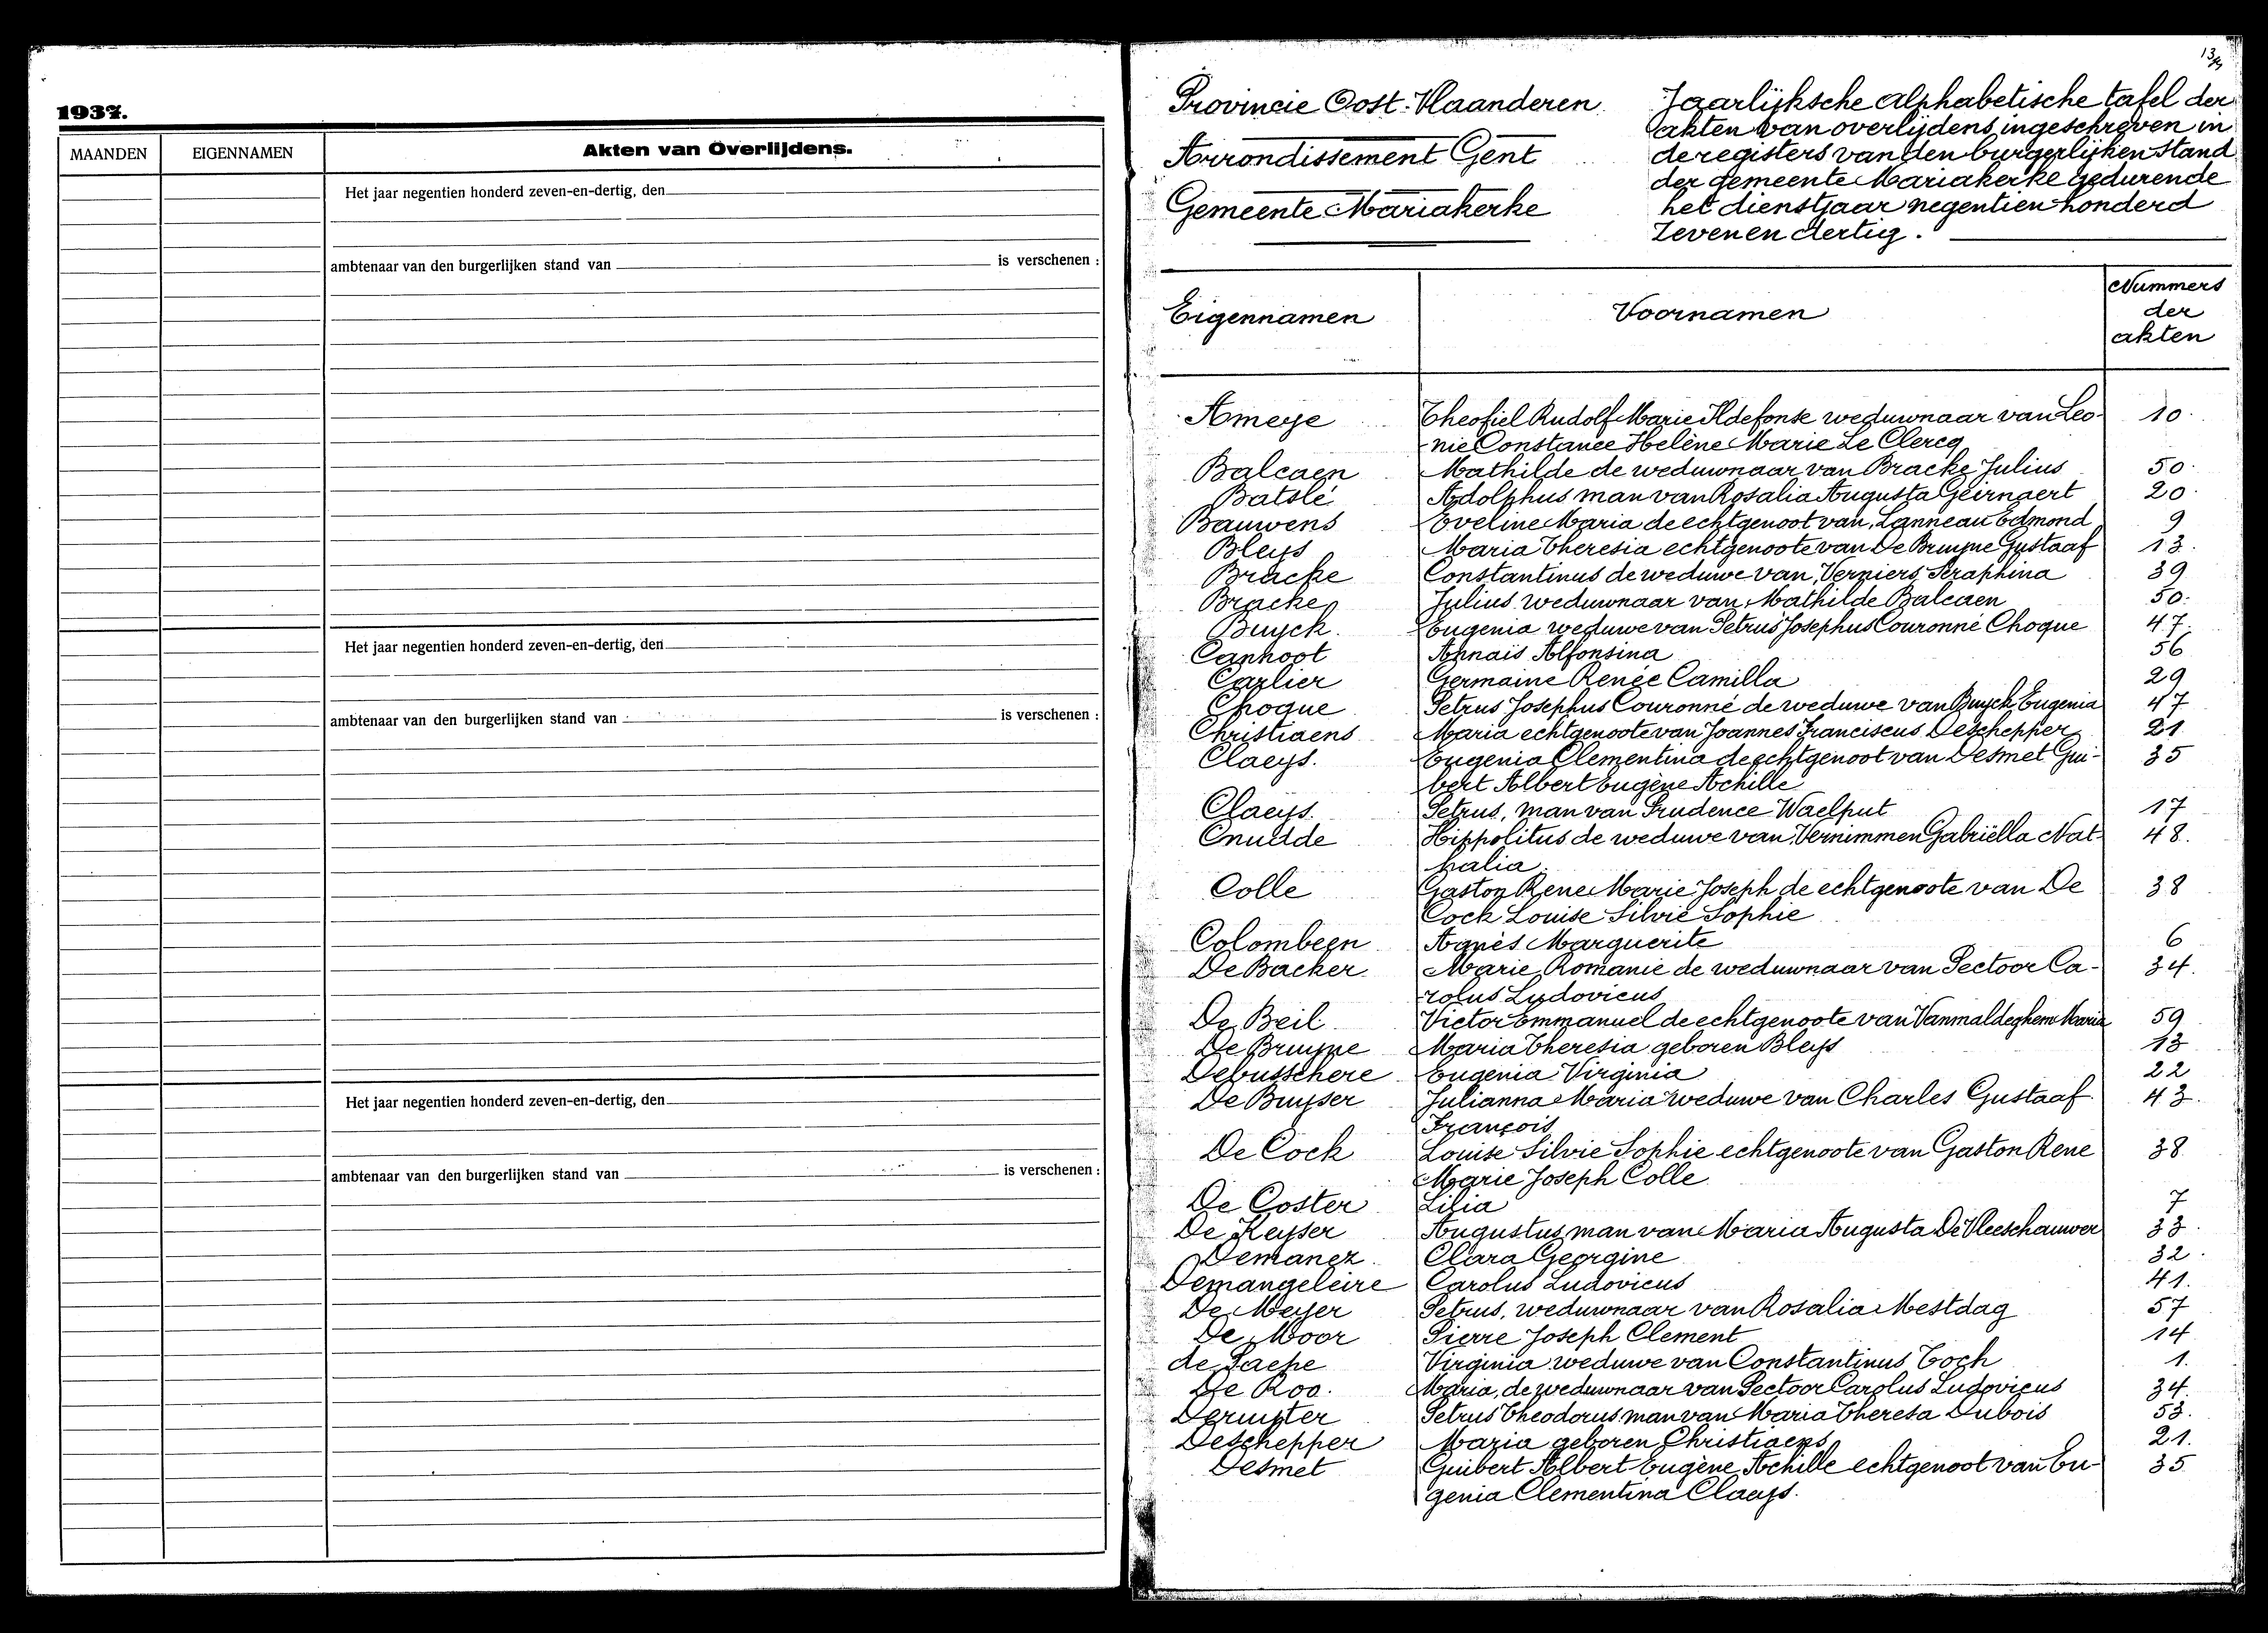 1937.
MAANDEN EIGENNAMEN Akten van Overlijdens.
Het jaar negentien honderd zeven-en-dertig, den
ambtenaar van den burgerlijken stand van is verschenen :
Het jaar negentien honderd zeven-en-dertig, den
ambtenaar van den burgerlijken stand van is verschenen :
Het jaar negentien honderd zeven-en-dertig, den
ambtenaar van den burgerlijken stand van is verschenen :
Provincie Oost-Vlaanderen
Arrondissement Gent
Gemeente Mariakerke
Jaarlijksche alphabetische tafel der
akten van overlijdens ingeschreven in
de registers van den burgerlijken stand
der gemeente Mariakerke gedurende
het dienstjaar negentien honderd
Zeven en dertig.
Eigennamen Voornamen Nummers
der
akten
Ameye Theofiel Rudolf Marie Ildefonse weduwnaar van Leo- 10
nie Constance Helène Marie Le Clercq
Balcaen Mathilde de weduwnaar van Bracke Julius 50
Batslé Adolphus man van Rosalia Augusta Geirnaert 20
Bauwens Eveline Maria de echtgenoot van Lanneau Edmond 9
Bleys Maria Theresia echtgenoote van De Bruyne Gustaaf 13
Bracke Constantinus de weduwe van Verniers Seraphina 39
Bracke Julius weduwnaar van Mathilde Balcaen 50
Buyck Eugenia weduwe van Petrus Josephus Couronné Choque 47
Canhoot Annais Alfonsina 56
Carlier Germaine Renée Camilla 29
Choque Petrus Josephus Couronné de weduwe van Buyck Eugenia 47
Christiaens Maria echtgenoote van Joannes Franciscus Deschepper 21
Claeys. Eugenia Clementina de echtgenoot van Desmet Gui- 35
bert Albert Eugène Achille
Claeys. Petrus, man van Prudence Waelput 17
Cnudde Hippolitus de weduwe van Vernimmen Gabriëlla Nat- 48.
halia
Colle Gaston Rene Marie Joseph de echtgenoote van De 38
Cock Louise Silvie Sophie
Colombeen Agnès Marguerite 6
De Backer Marie Romanie de weduwnaar van Pectoor Ca- 34.
rolus Ludovicus
De Beil Victor Emmanuel de echtgenoote van Vanmaldeghem Maria 59
De Bruyne Maria Theresia geboren Bleys 13
Debusschere Eugenia Virginia 22
De Buyser Julianna Maria weduwe van Charles Gustaaf 43.
François
De Cock Louise Silvie Sophie echtgenoote van Gaston Rene 38
Marie Joseph Colle
De Coster Lilia 7
De Keyser Augustus man van Maria Augusta De Vleeschauwer 33
Demanez Clara Georgine 32
Demangeleire Carolus Ludovicus 41.
De Meyer Petrus, weduwnaar van Rosalia Mestdag 57
De Moor Pierre Joseph Clement 14
de Paepe Virginia weduwe van Constantinus Toch 1.
De Roo. Maria, de weduwnaar van Pectoor Carolus Ludovicus 34.
Deruyter Petrus Theodorus man van Maria Theresa Dubois 53.
Deschepper Maria geboren Christiaens 21.
Desmet Guibert Albert Eugène Achille echtgenoot van Eu- 35
genia Clementina Claeys.